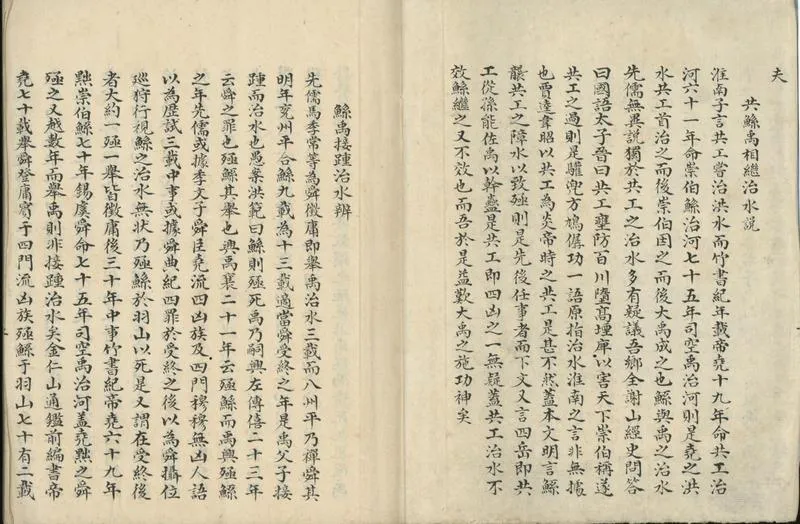 夫
共鯀禹相繼治水說
淮南子言共工嘗治洪水而竹書紀年載帝堯十九年命共工治
河六十一年命崇伯鯀治河七十五年司空禹治河則是堯之洪
水共工首治之而後崇伯因之而後大禹成之也鯀與禹之治水
先儒無異說獨於共工之治水多有疑議吾鄉全謝山經史問答
曰國語太子晉曰共工壅防百川墮高堙庳以害天下崇伯稱遂
共工之過則是驩兜方鳩僝功一語原指治水淮南之言非無據
也賈逵韋昭以共工為炎帝時之共工是甚不然蓋本文明言鯀
襲共工之障水以致殛則是先後任事者而下文又言四岳即共
工從孫能佐禹以幹蠱是共工即四凶之一無疑蓋共工治水不
效鯀繼之又不效也而吾於是益歎大禹之施功神矣
鯀禹接踵治水辨
先儒馬季常等為舜徵庸即舉禹治水三載而八州平乃禪舜其
明年兗州平合鯀九載為十三載適當舜受終之年是禹父子接
踵而治水也愚案洪範曰鯀則殛死禹乃嗣興左傳僖二十三年
云舜之罪也殛鯀其舉也興禹襄二十一年云殛鯀而禹興殛鯀
之年先儒或據季文子舜臣堯流四凶族及四門穆穆無凶人語
以為歷試三載中事或據舜典紀四罪於受終之後以為舜攝位
巡狩行視鯀之治水無狀乃殛鯀於羽山以死是又謂在受終後
者大約一殛一舉皆徵庸後三十年中事竹書紀帝堯六十九年
黜崇伯鯀七十年錫虞舜命七十五年司空禹治河蓋堯黜之舜
殛之又越數年而舉禹則非接踵治水矣金仁山通鑑前編書帝
堯七十載舉舜登庸賓于四門流凶族殛鯀于羽山七十有二載